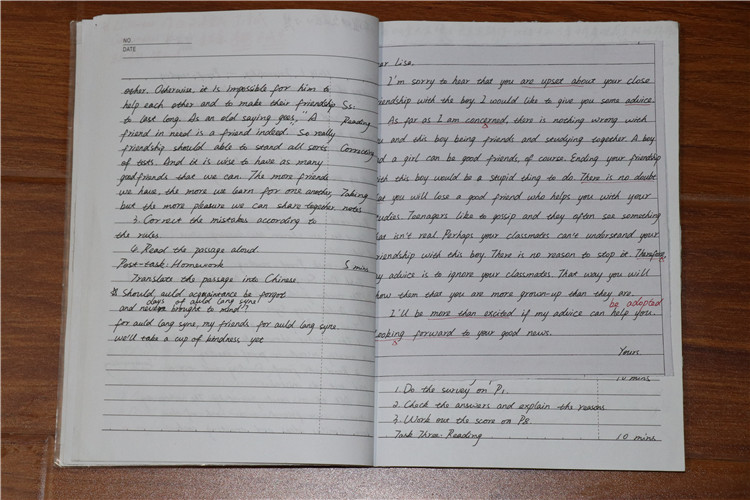 NO.
DATE
other. Otherwise, it is impossible for him to
help each other and to make their friendship
to last long. As an old saying goes, "A
friend in need is a friend indeed. So really
friendship should able to stand all sorts
of tests. And it is wise to have as many
good friends that we can. The more friends
we have, the more we learn for one another,
but the more pleasure we can share together.
3. Correct the mistakes according to
the rules.
4. Read the passage aloud.
Post-task: Homework
Translate the passage into Chinese.
Should auld acquaintance be forgot
days of auld lang syne
and never brought to mind?
for auld lang syne, my friends for auld lang syne
we'll take a cup of kindness yet
Ss:
Reading
Correcting
Taking
notes
5 mins
ar Lisa,
I'm sorry to hear that you are upset about your close
iendship with the boy. I would like to give you some advice.
As far as I am concerned, there is nothing wrong with
u and this boy being friends and studying together. A boy
d a girl can be good friends, of course. Ending your friendship
ith this boy would be a stupid thing to do. There is no doubt
at you will lose a good friend who helps you with your
udies. Teenagers like to gossip and they often see something
at isn't real. Perhaps your classmates can't understand your
riendship with this boy. There is no reason to stop it. Therefore,
y advice is to ignore your classmates. That way you will
how them that you are more grown-up than they are.
be adopted
I'll be more than excited if my advice can help you.
ooking forward to your good news.
Yours
10 mins
1. Do the survey on P1.
2. Check the answers and explain the reasons
3. Work out the score on P8.
Task Three. Reading
10 mins